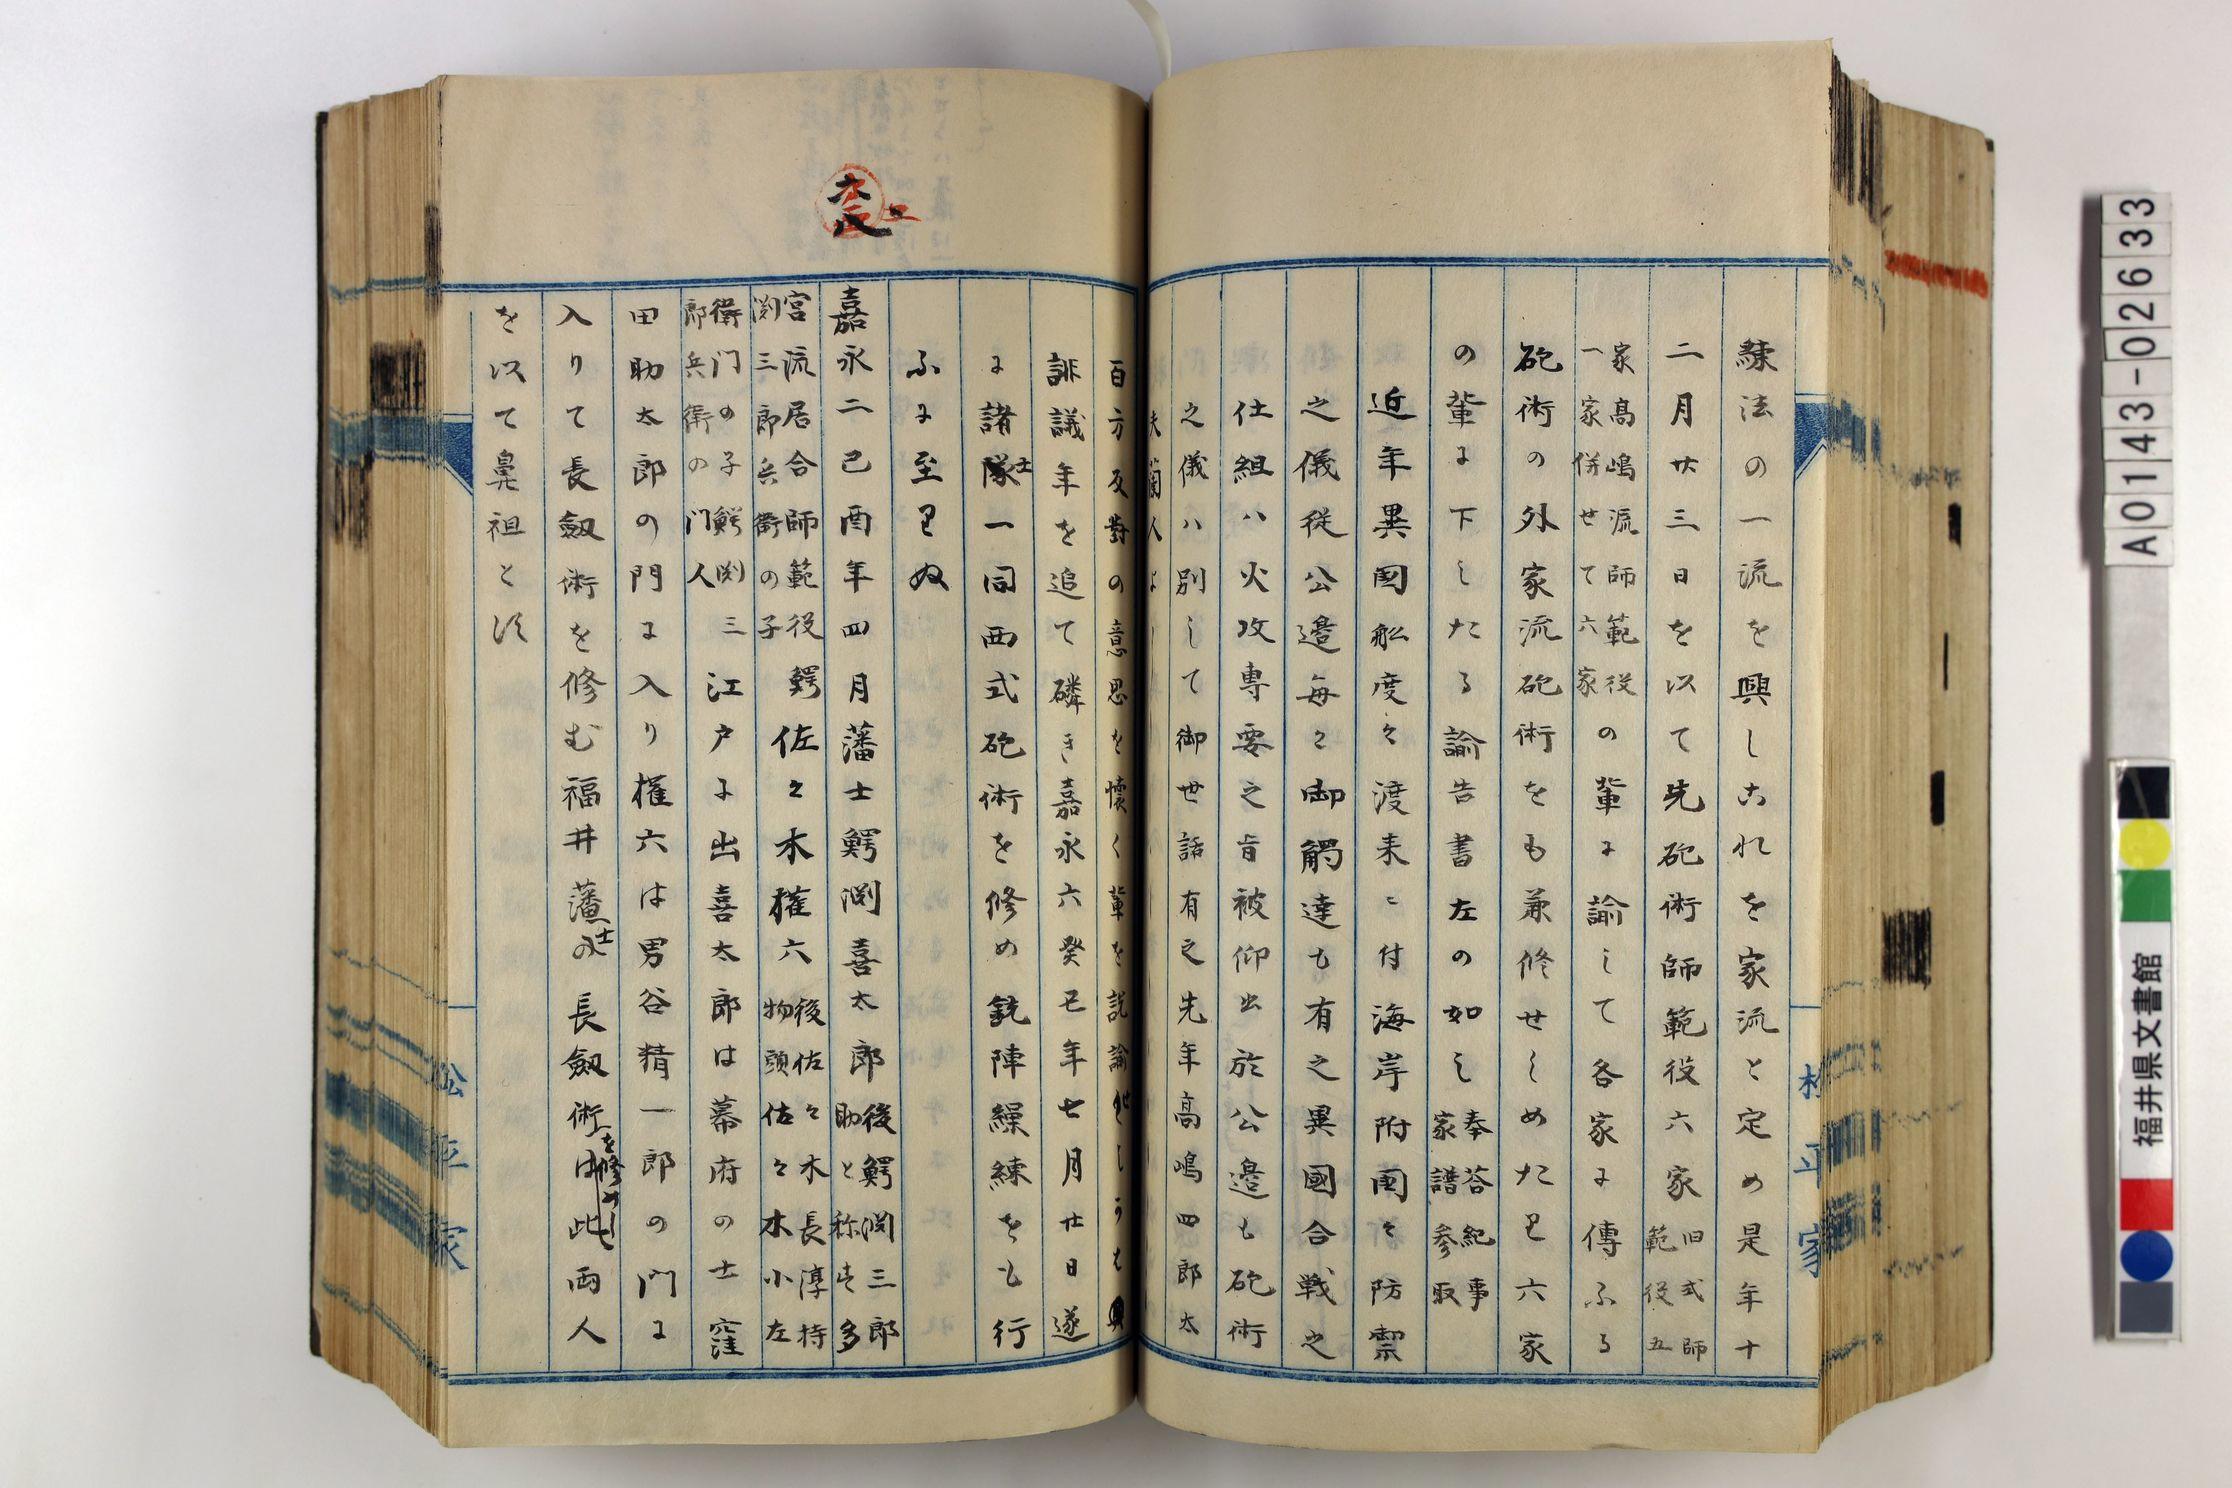 練法の一流を興しこれを家流と定め是年十
二月廿三日を以て先砲術師範役六家旧式師範役五
家高嶋流師範役一家併せて六家の輩に諭して各家に傳ふる
砲術の外家流砲術をも兼修せしめたり六家
の輩に下したる諭告書左の如し奉荅紀事家譜参取
近年異國舩度々渡来ニ付海岸附國々防禦
之儀従公邉毎々御觸達も有之異國合戦之
仕組ハ火攻専要之旨被仰出於公邉も砲術
之儀ハ別して御世話有之先年高嶋四郎太
夫蘭人よ
百方反對の意思を懐く輩を説諭せしうち
誹議年を追て磷き嘉永六癸丑年七月廿日遂
に諸隊士一同西式砲術を修め銃陣繰練をも行
ふに至りぬ
六八
嘉永二己酉年四月藩士鰐渕喜太郎後鰐渕三郎助と称す多
宮流居合師範役渕三郎兵衛の子鰐佐々木權六後佐々木長淳持物頭佐々木小左
衛门の子鰐渕三郎兵衛の门人江戸に出喜太郎は幕府の士窪
田助太郎の門に入り權六は男谷精一郎の门に
入りて長劔術を修む福井藩士の長劔術を修めしは此両人
を以て鼻祖と須
松平家
松平家
A0143-02633
福井県文書館